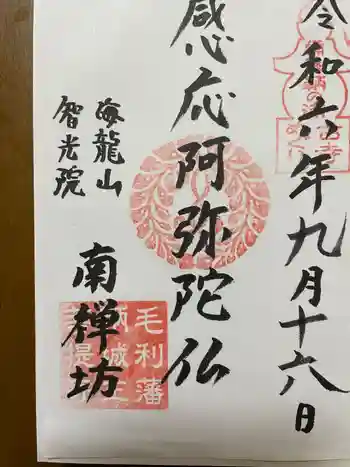 令和六年九月十六日
感応阿弥陀仏
海龍山
智光院
南禅坊
毛利藩